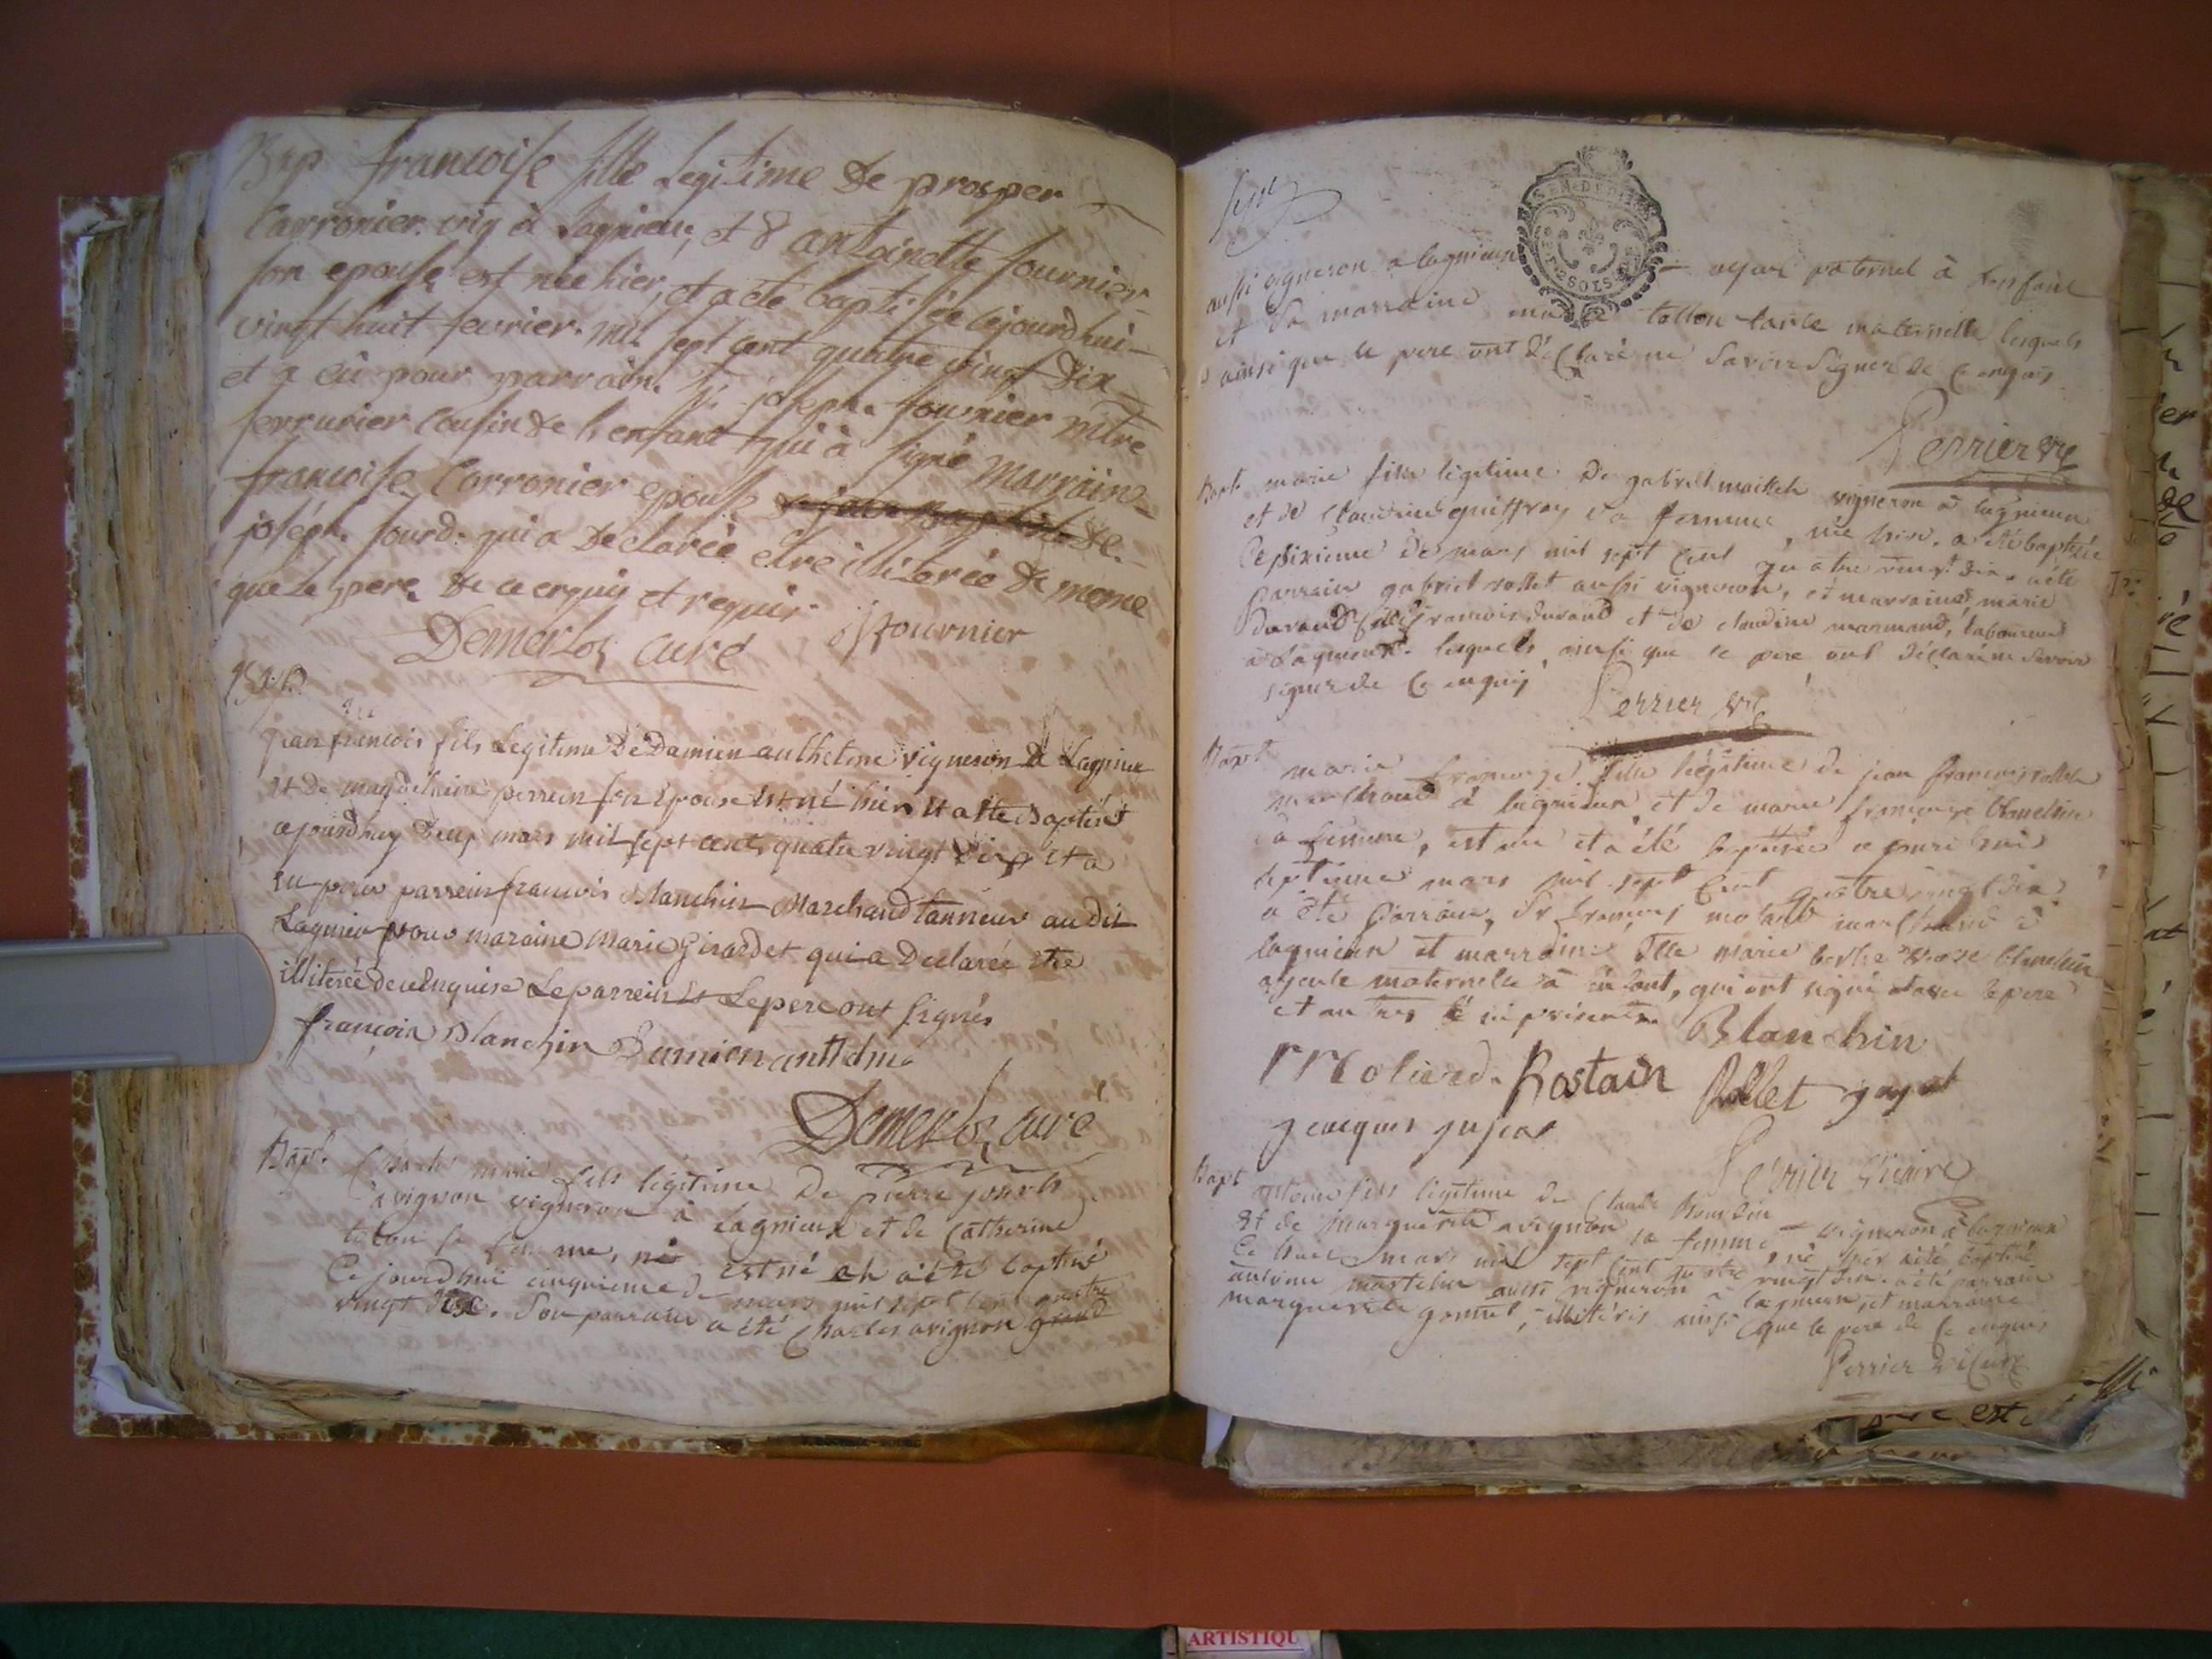 Bap francoise fille Legitime De prosper
Carronier vig à Lagnieu, et d antoinette fournier
son epouse est née hier, et a été baptisée cejourdhui
vingt huit fevrier mil sept cent quatre vingt Dix
et a eû pour parrain Sr joseph fournier mtre
serrurier Cousin de l'enfant qui à signé Marraine
francoise Carronier epouse De
joseph sourd qui a Declarée etre illiterée De meme
que le pere De ce enquis et requis
Demerloz curé fournier
Bap
jean francois fils Legitime De Damien anthelme vigneron a Lagnieu
et De magdelaine perrein son Epouse est né hier et a ete Baptisé
cejourdhuy Deux mars mil sept cent quatre vingt Dix et a
eu pour parrein francois Blanchin Marchand tanneur au dit
Lagnieu pour maraine Marie Girardet qui a Declarée etre
illiterée de ce Enquise Le parrein et Le pere ont signés
françois Blanchin Damien anthelme
Demerloz curé
Bapt. Charle marie fils légitime De pierre joseph
avignon vigneron à Lagnieux et de Catherine
tolon sa femme, né est né et a été baptisé
Ce jourdhui cinquieme de mars mil sept cent quatre
vingt dix. Son parrain a été Charles avignon grand
aussi vigneron a lagnieu ayeul paternel à l'enfant
et sa marraine tollon tante maternelle lesquels
ainsi que le pere ont Déclaré ne Savoir Signer De Ce enquis
Perrier vic
Bapt. marie fille légitime De gabriel vigneron à lagnieux
et de Claudine sa femme, née hier, a été baptisée
Ce sixieme De mars mil sept Cent quatre vingt Dix a été
parrain gabriel rollet aussi vigneron, et marraine marie
Durand fille francois Durand et De claudine marmand, laboureur
à Lagnieux. lesquels ainsi que le pere ont Déclaré ne Savoir
signer De Ce enquis Perrier vic
Bapt marie françoise fille légitime de jean françois rollet
marchand à lagnieux et de marie françoise blanchin
sa femme, est née et a été baptisée ce jourd'hui
septieme mars mil sept Cent quatre vingt dix
a été parrain, Sr françois molard marchand à
lagnieux et marraine Dlle marie blanchin
ayeule maternelle à l'enfant, qui ont signé avec le pere
et autres Blanchin
Rostain Rollet
jacques jujat
Perrier vicaire
Bapt antoine fils légitime De Claude vigneron à lagnieux
et de marguerite avignon sa femme, né hier a été baptisé
Ce huit mars mil sept cent quatre vingt dix. a été parrain
antoine martelin aussi vigneron à lagnieux, et marraine
marguerite illitérés ainsi que le pere de ce enquis
Perrier vicaire
2 SOLS
ARTISTIQU